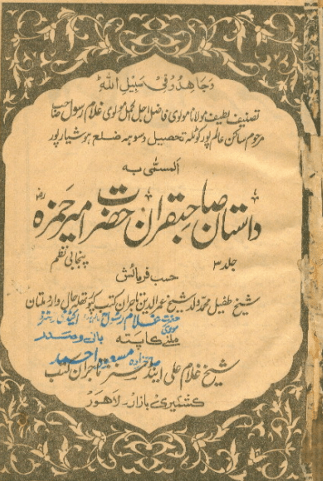 وجاهدو فی سبیل اللہ
تصنیف لطیف مولانا مولوی فاضل مولوی غلام رسول صاحب
مرحوم ساکن عالم پور کوٹلہ تحصیل دسوہہ ضلع ہوشیارپور
المسمّٰی بہ
داستان صاحبقران حضرت امیر حمزہ
جلد ۳ پنجابی نظم
حسب فرمائش
شیخ طفیل محمد ولد شیخ عمرالدین تاجران کتب حال وارد ملتان
غلام رسول
ملنے کا پتہ
مسعود احمد
شیخ غلام علی اینڈ سنز تاجران کتب
کشمیری بازار۔ لاہور